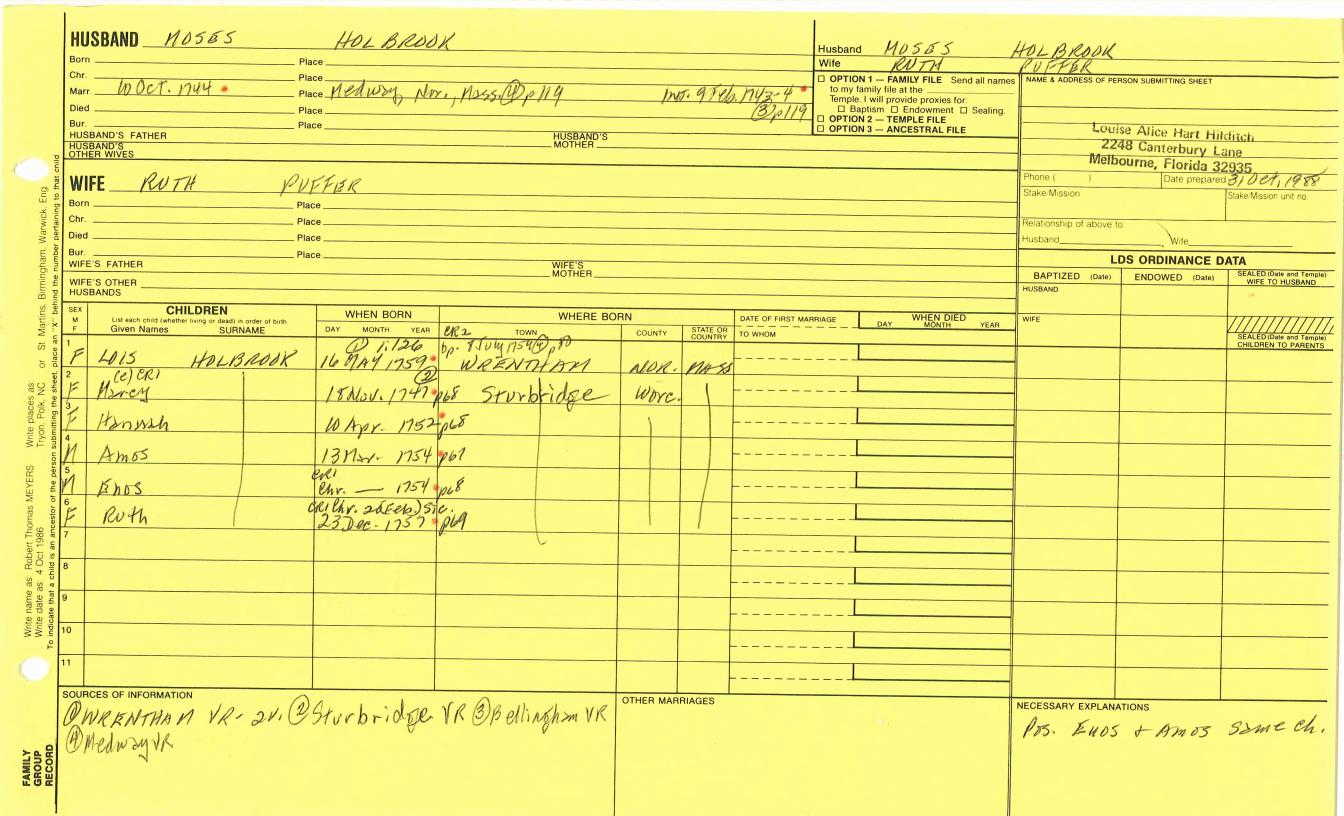 HUSBAND MOSES HOLBROOK
Born Place
Chr. Place
Marr 10 Oct. 1744 Place Medway, Nor., Mass. ④ p119 Int. 9 Feb. 1743-4
Died Place ③ p119
Bur. Place
HUSBAND'S FATHER HUSBAND'S MOTHER
HUSBAND'S OTHER WIVES
Husband MOSES HOLBROOK
Wife RUTH PUFFER
☐ OPTION 1 — FAMILY FILE Send all names
to my family file at the
Temple. I will provide proxies for:
☐ Baptism ☐ Endowment ☐ Sealing.
☐ OPTION 2 — TEMPLE FILE
☐ OPTION 3 — ANCESTRAL FILE
NAME & ADDRESS OF PERSON SUBMITTING SHEET
Louise Alice Hart Hilditch
2248 Canterbury Lane
Melbourne, Florida 32935
Phone ( ) Date prepared 31 Oct, 1988
Stake/Mission Stake/Mission unit no.
Relationship of above to
Husband Wife
WIFE RUTH PUFFER
Born Place
Chr. Place
Died Place
Bur. Place
WIFE'S FATHER WIFE'S MOTHER
WIFE'S OTHER HUSBANDS
LDS ORDINANCE DATA
BAPTIZED (Date) ENDOWED (Date) SEALED (Date and Temple) WIFE TO HUSBAND
HUSBAND
WIFE
SEALED (Date and Temple) CHILDREN TO PARENTS
SEX M F
CHILDREN
List each child (whether living or dead) in order of birth
Given Names SURNAME
WHEN BORN
DAY MONTH YEAR
WHERE BORN
TOWN COUNTY STATE OR COUNTRY
DATE OF FIRST MARRIAGE
TO WHOM
WHEN DIED
DAY MONTH YEAR
① 1:126 CR2 bp. 8 July 1759 ④ p80
1 F LOIS HOLBROOK 16 MAY 1759 WRENTHAM NOR. MASS
(c) CR1 ②
2 F Marcy 18 Nov. 1747 p68 Sturbridge Worc.
3 F Hannah 10 Apr. 1752 p68
4 M Amos 13 Mar. 1754 p67
5 M Enos CR1 Chr. — 1754 p68
6 F Ruth CR1 Chr. 26 (Feb.) sic. 23 Dec. 1757 p69
7
8
9
10
11
SOURCES OF INFORMATION
① WRENTHAM VR- 2v. ② Sturbridge VR ③ Bellingham VR
④ Medway VR
OTHER MARRIAGES
NECESSARY EXPLANATIONS
Pos. Enos & Amos same ch.
Write name as: Robert Thomas MEYERS Write places as: Tryon, Polk, NC or St Martins, Birmingham, Warwick, Eng
Write date as: 4 Oct 1986
To indicate that a child is an ancestor of the person submitting the sheet, place an "X" behind the number pertaining to that child
FAMILY GROUP RECORD